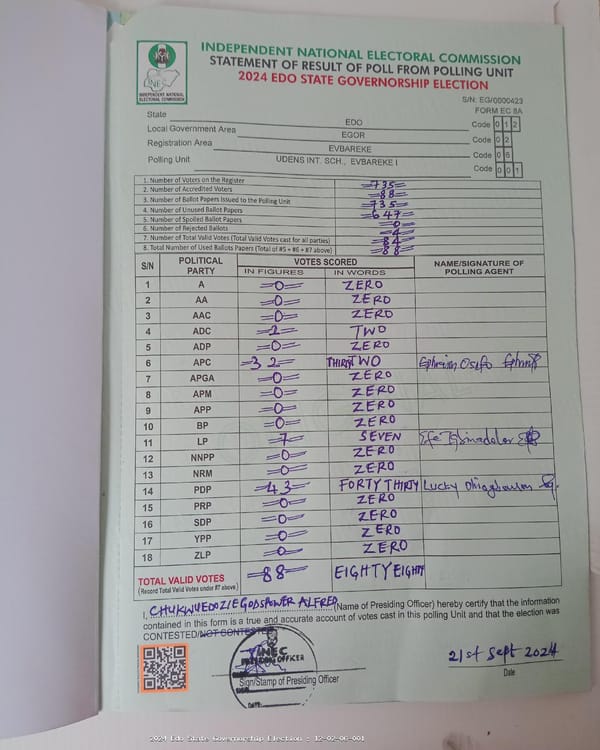 INDEPENDENT NATIONAL ELECTORAL COMMISSION
STATEMENT OF RESULT OF POLL FROM POLLING UNIT
2024 EDO STATE GOVERNORSHIP ELECTION
INEC
INDEPENDENT NATIONAL ELECTORAL COMMISSION
S/N: EG/0000423
FORM EC 8A
State EDO Code 0 1 2
Local Government Area EGOR Code 0 2
Registration Area EVBAREKE Code 0 6
Polling Unit UDENS INT. SCH., EVBAREKE I Code 0 0 1
1. Number of Voters on the Register =735=
2. Number of Accredited Voters =88=
3. Number of Ballot Papers Issued to the Polling Unit =735=
4. Number of Unused Ballot Papers =647=
5. Number of Spoiled Ballot Papers =0=
6. Number of Rejected Ballots =4=
7. Number of Total Valid Votes (Total Valid Votes cast for all parties) =84=
8. Total Number of Used Ballots Papers (Total of #5 + #6 + #7 above) =88=
S/N POLITICAL PARTY VOTES SCORED NAME/SIGNATURE OF POLLING AGENT
IN FIGURES IN WORDS
1 A =0= ZERO
2 AA =0= ZERO
3 AAC =0= ZERO
4 ADC =2= TWO
5 ADP =0= ZERO
6 APC =32= THIRTY TWO
7 APGA =0= ZERO
8 APM =0= ZERO
9 APP =0= ZERO
10 BP =0= ZERO
11 LP =7= SEVEN
12 NNPP =0= ZERO
13 NRM =0= ZERO
14 PDP =43= FORTY THIRTY Lucky
15 PRP =0= ZERO
16 SDP =0= ZERO
17 YPP =0= ZERO
18 ZLP =0= ZERO
TOTAL VALID VOTES =88= EIGHTY EIGHTY
(Record Total Valid Votes under #7 above)
I, CHUKWUEDOZIE GODSPOWER ALFRED (Name of Presiding Officer) hereby certify that the information
contained in this form is a true and accurate account of votes cast in this polling Unit and that the election was
CONTESTED/NOT CONTESTED
INEC
PRESIDING OFFICER
SIGN:
DATE:
Sign/Stamp of Presiding Officer
21st Sept 2024
Date
2024 Edo State Governorship Election : 12-02-06-001